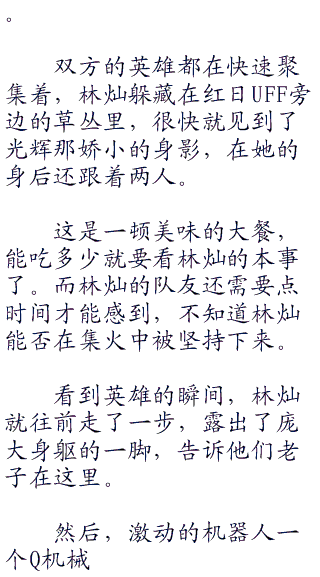 。
双方的英雄都在快速聚
集着，林灿躲藏在红日UFF旁
边的草丛里，很快就见到了
光辉那娇小的身影，在她的
身后还跟着两人。
这是一顿美味的大餐，
能吃多少就要看林灿的本事
了。而林灿的队友还需要点
时间才能感到，不知道林灿
能否在集火中被坚持下来。
看到英雄的瞬间，林灿
就往前走了一步，露出了庞
大身躯的一脚，告诉他们老
子在这里。
然后，激动的机器人一
个Q机械